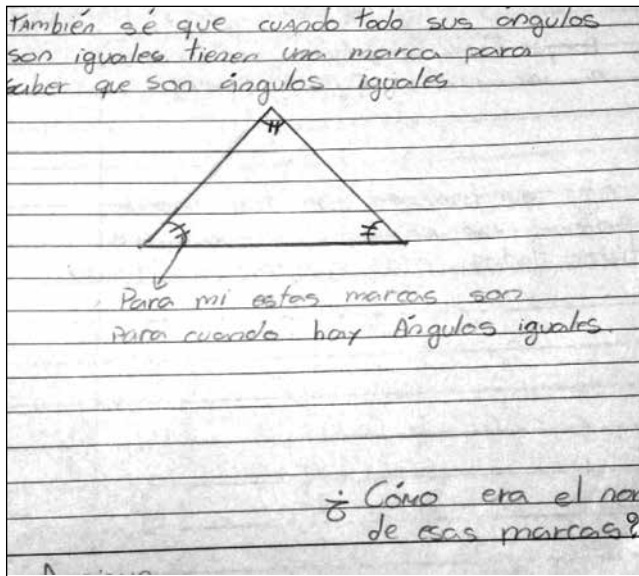 también sé que cuando todo sus ángulos
son iguales tienen una marca para
saber que son ángulos iguales
Para mi estas marcas son
Para cuando hay Ángulos iguales.
¿Cómo era el nom
de esas marcas?